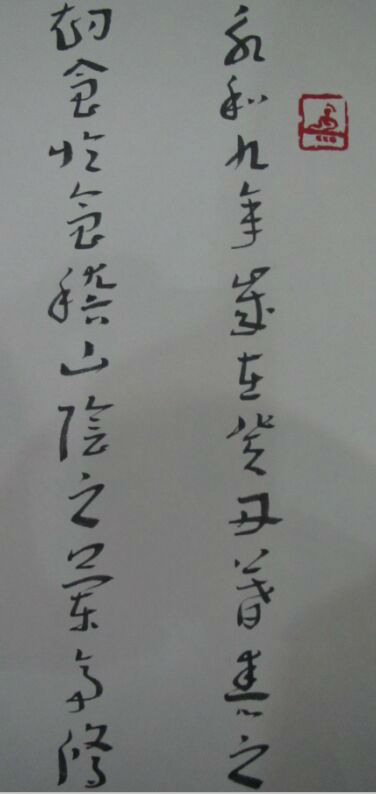 永和九年歲在癸丑暮春之
初會於會稽山陰之蘭亭脩